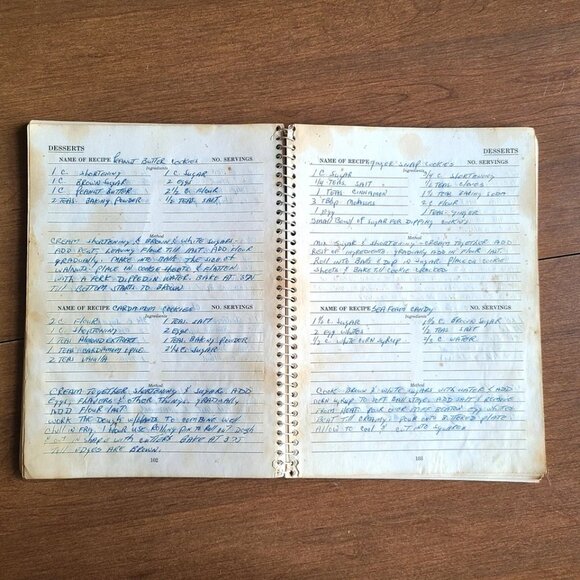 DESSERTS
NAME OF RECIPE PEANUT BUTTER COOKIES NO. SERVINGS
Ingredients
1 C. SHORTENING 1 C. SUGAR
1 C. BROWN SUGAR 2 EGGS
1 C. PEANUT BUTTER 2½ C. FLOUR
2 TEAS. BAKING POWDER ½ TEAS. SALT
Method
CREAM SHORTENING & BROWN & WHITE SUGARS.
ADD REST, LEAVING FLOUR TILL LAST. ADD FLOUR
GRADUALLY. MAKE INTO BALLS THE SIZE OF
WALNUTS PLACE ON COOKIE SHEETS & FLATTEN
WITH A FORK DIPPED IN WATER. BAKE AT 375
TILL BOTTOM STARTS TO BROWN
NAME OF RECIPE CARDAMOM COOKIES NO. SERVINGS
Ingredients
2 C. FLOUR 1 TEAS. SALT
1 C. SHORTENING 2 EGGS
1 TEAS. ALMOND EXTRACT 1 TEAS. BAKING POWDER
1 TEAS. CARDAMOM SUGAR
2 TEAS VANILLA
Method
CREAM TOGETHER SHORTENING & SUGAR. ADD
EGGS, FLAVORS & OTHER THINGS. GRADUALLY
ADD FLOUR LAST
WORK THE DOUGH TO COMBINE WELL
CHILL IN FRIG. 1 HOUR USE ROLLING PIN TO ROLL OUT DOUGH
CUT IN SHAPES WITH CUTTERS BAKE AT 375
TILL EDGES ARE BROWN.
102
DESSERTS
NAME OF RECIPE GINGER SNAP COOKIES NO. SERVINGS
Ingredients
1 C. SUGAR ¾ C. SHORTENING
¼ TEAS. SALT ½ TEAS. CLOVES
1 TEAS. CINNAMON 1½ TEAS. BAKING SODA
3 TBSP MOLASSES 2 C FLOUR
1 EGG 1 TEAS. GINGER
SMALL BOWL OF SUGAR FOR DIPPING COOKIES
Method
MIX SUGAR & SHORTENING - CREAM TOGETHER ADD
REST OF INGREDIENTS GRADUALLY ADD IN FLOUR LAST.
ROLL INTO BALLS & DIP IN SUGAR PLACE ON COOKIE
SHEETS & BAKE TIL COOKIE CRACKED
NAME OF RECIPE SEA FOAM CANDY NO. SERVINGS
Ingredients
1½ C. SUGAR 1½ C. BROWN SUGAR
2 EGG WHITES ½ TEAS SALT
½ C. WHITE CORN SYRUP ½ C. WATER
Method
COOK BROWN & WHITE SUGARS WITH WATER & ADD
CORN SYRUP TO SOFT BALL STAGE, ADD SALT & REMOVE
FROM HEAT. POUR OVER STIFF BEATEN EGG WHITES
BEAT TILL CREAMY. POUR INTO BUTTERED PLATE
ALLOW TO COOL & CUT INTO SQUARES
103